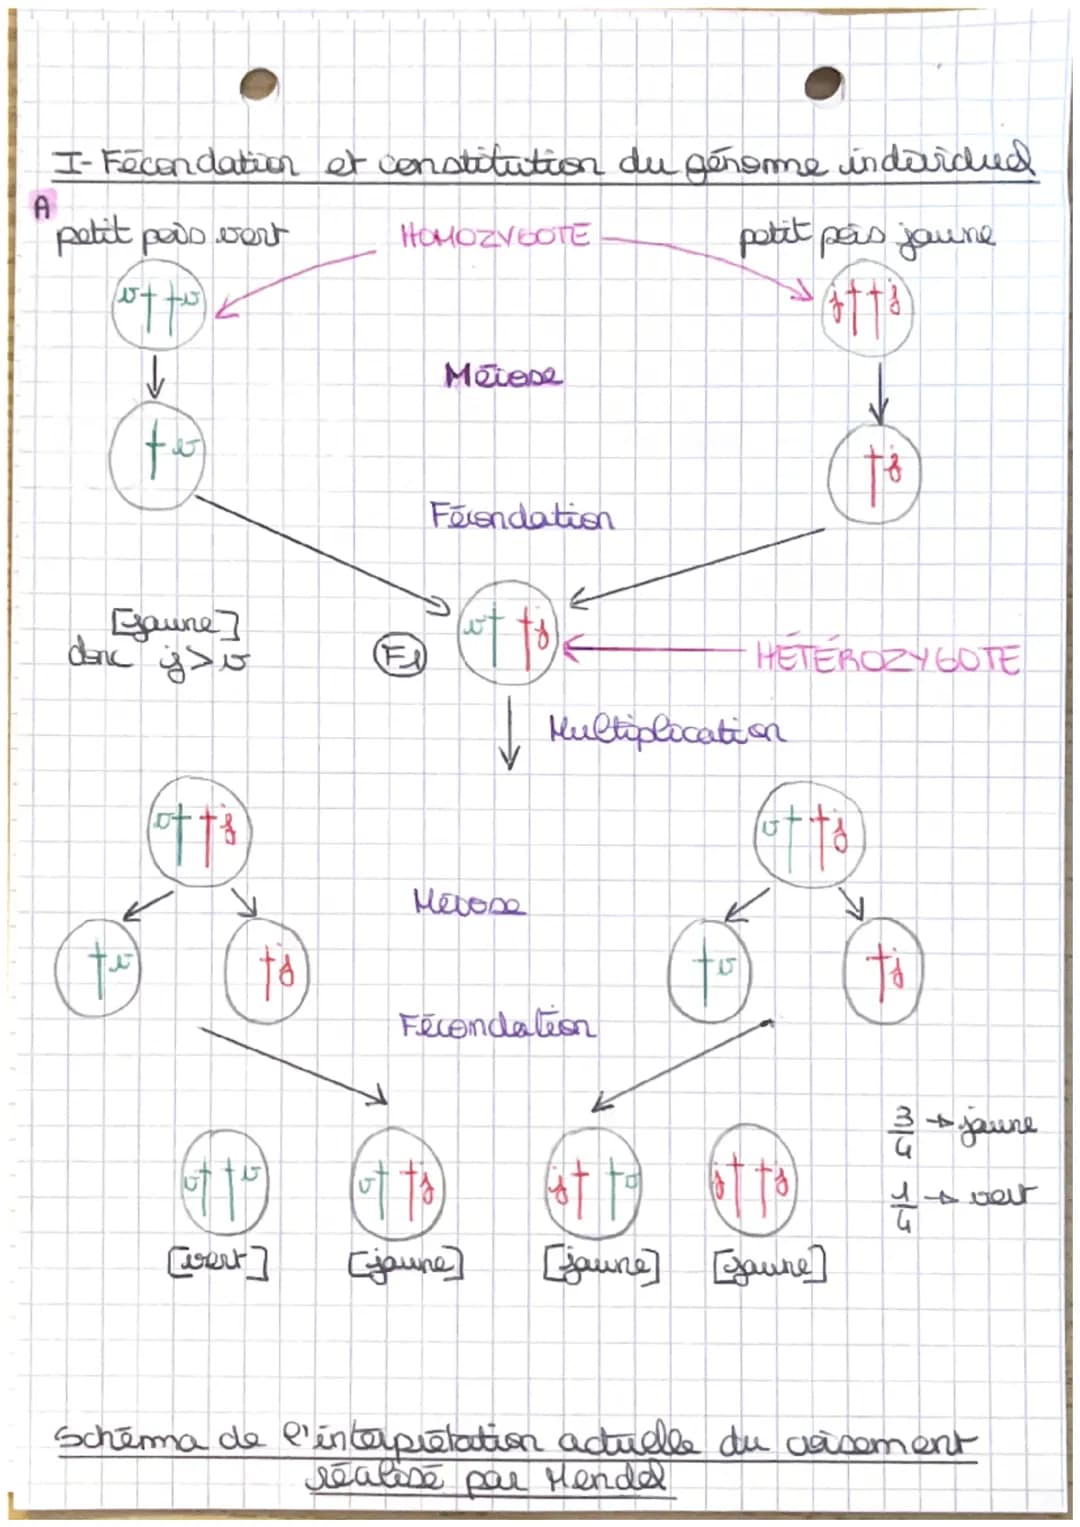 I- Fécondation et constitution du génome individuel
A
petit pois vert HOMOZYGOTE petit pois jaune
v v j j
Méiose
v j
Fécondation
[jaune]
donc j > v
F1
v j
HÉTÉROZYGOTE
Multiplication
v j v j
Méiose
v j v j
Fécondation
3/4 → jaune
1/4 → vert
v v v j j v j j
[vert] [jaune] [jaune] [jaune]
Schéma de l'interprétation actuelle du croisement
réalisé par Mendel